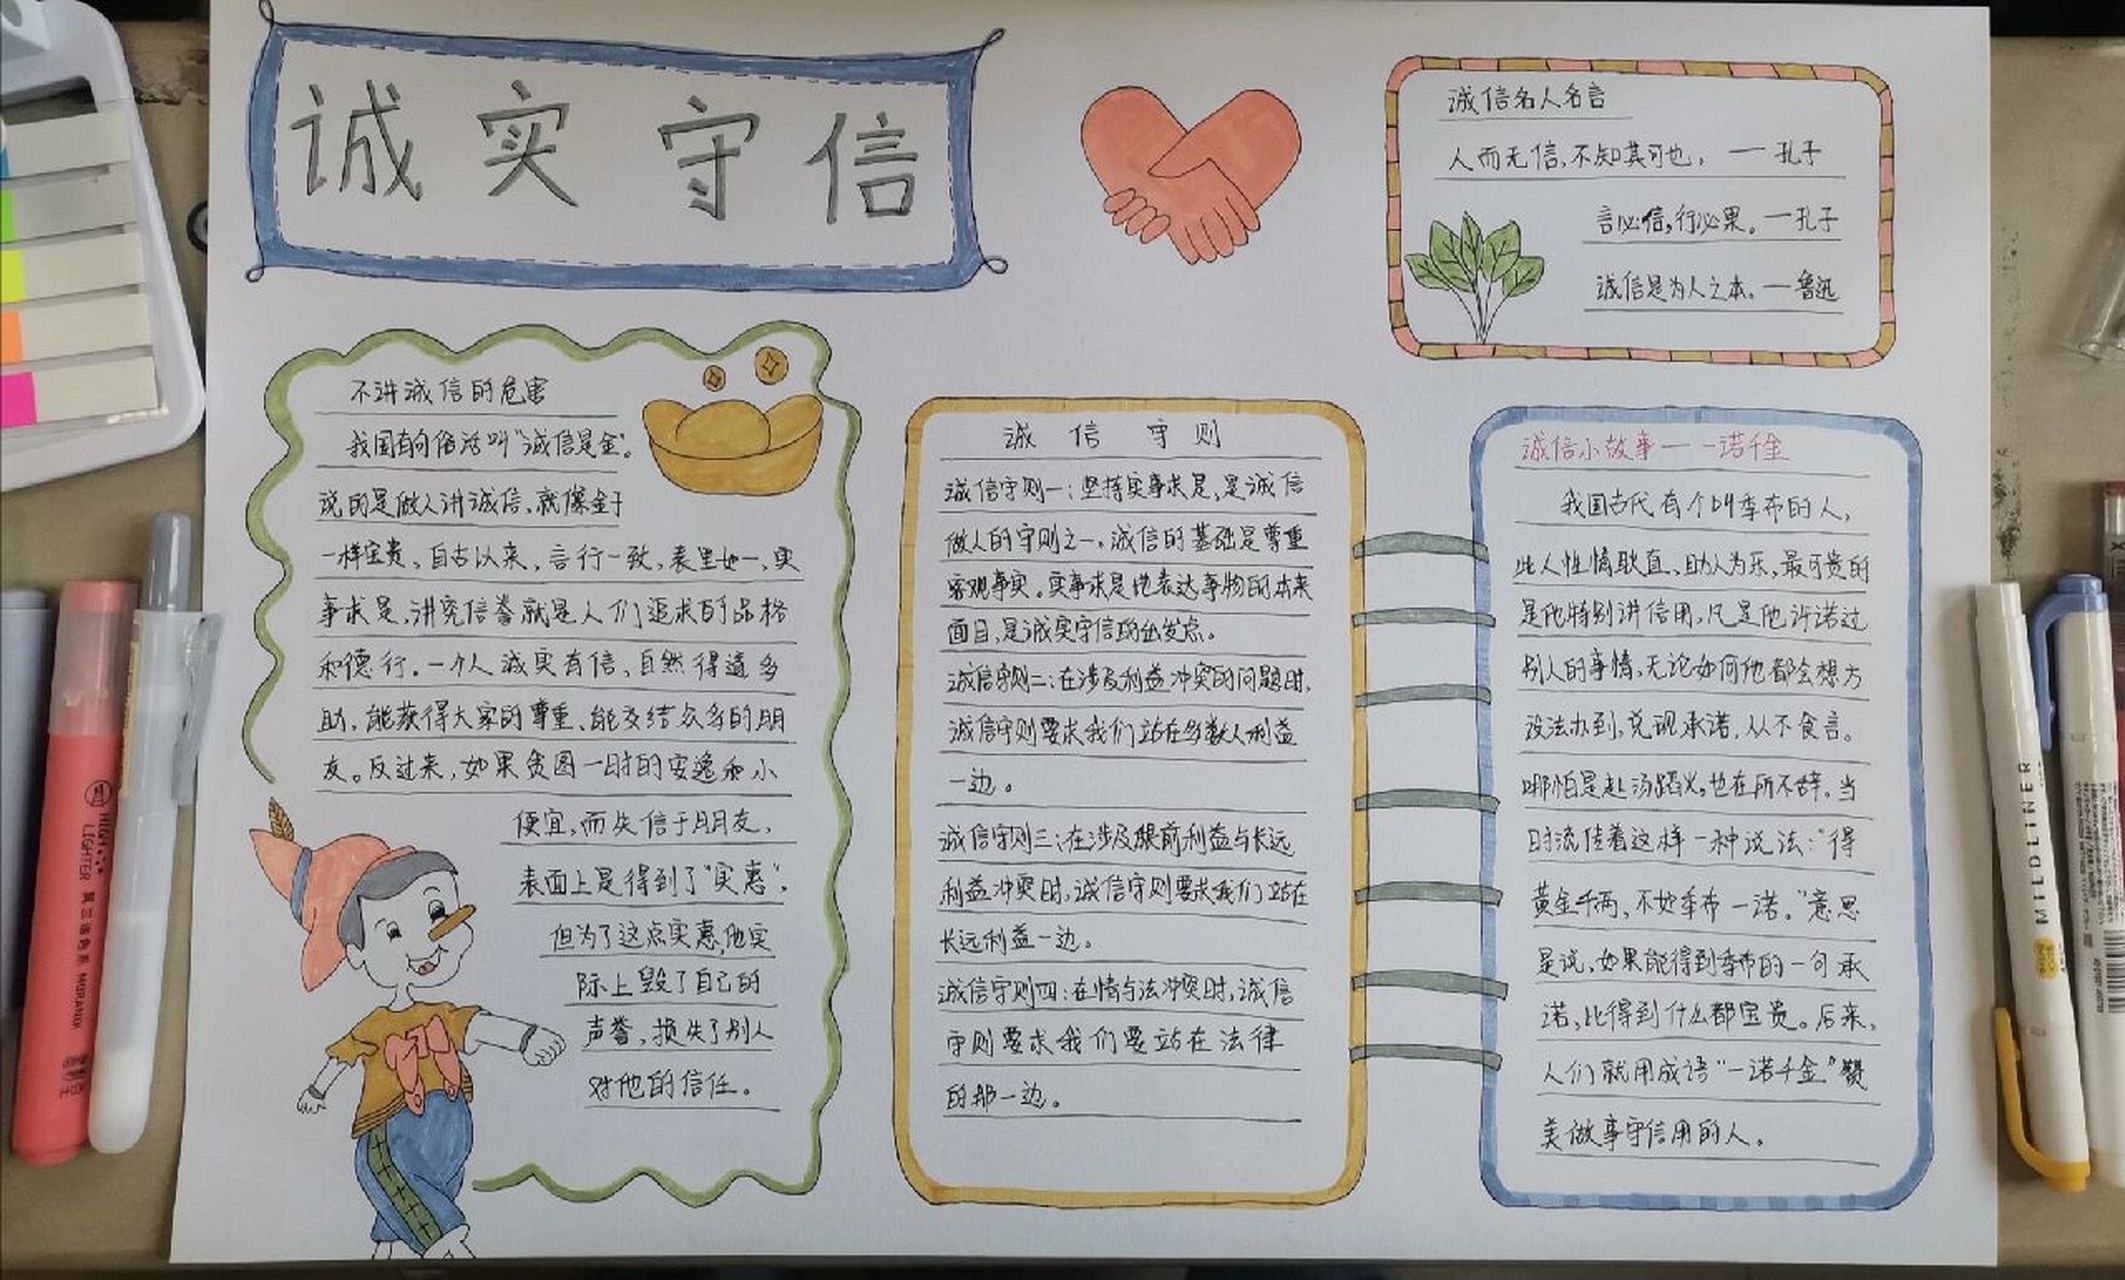 诚实守信
诚信名人名言
人而无信,不知其可也。——孔子
言必信,行必果。—孔子
诚信是为人之本。—鲁迅
不讲诚信的危害
我国有句俗话叫“诚信是金”。
说的是做人讲诚信,就像金子
一样宝贵。自古以来,言行一致,表里如一,实
事求是,讲究信誉就是人们追求的品格
和德行。一个人诚实有信,自然得道多
助,能获得大家的尊重,能交结众多的朋
友。反过来,如果贪图一时的安逸和小
便宜,而失信于朋友,
表面上是得到了“实惠”。
但为了这点实惠,他实
际上毁了自己的
声誉,损失了别人
对他的信任。
诚信守则
诚信守则一:坚持实事求是,是诚信
做人的守则之一。诚信的基础是尊重
客观事实。实事求是地表达事物的本来
面目,是诚实守信的出发点。
诚信守则二:在涉及利益冲突的问题时,
诚信守则要求我们站在多数人利益
一边。
诚信守则三:在涉及眼前利益与长远
利益冲突时,诚信守则要求我们站在
长远利益一边。
诚信守则四:在情与法冲突时,诚信
守则要求我们要站在法律
的那一边。
诚信小故事——一诺千金
我国古代有个叫季布的人,
此人性情耿直,助人为乐,最可贵的
是他特别讲信用,凡是他许诺过
别人的事情,无论如何他都会想方
设法办到,兑现承诺,从不食言。
哪怕是赴汤蹈火,也在所不辞。当
时流传着这样一种说法:“得
黄金千两,不如季布一诺。”意思
是说,如果能得到季布的一句承
诺,比得到什么都宝贵。后来,
人们就用成语“一诺千金”赞
美做事守信用的人。
HIGH
LIGHTER
MILDLINER